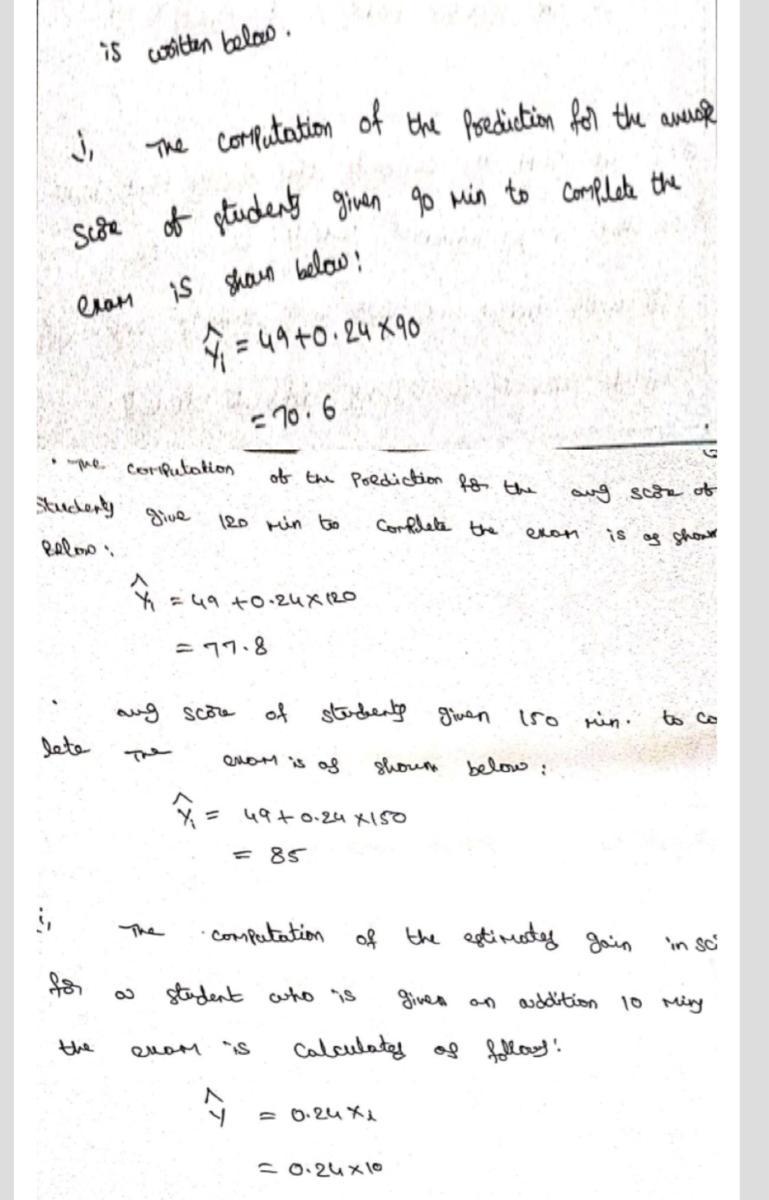 is written below.
i, The computation of the Prediction for the average
Score of students given 90 min to complete the
exam is shown below:
Ŷᵢ = 49+0.24×90
= 70.6
• The computation of the Prediction for the avg score of
Students give 120 min to Complete the exam is as shown
below:
Ŷᵢ = 49+0.24×120
= 77.8
• avg score of students given 150 min. to co
lete The exam is as shown below:
Ŷᵢ = 49+0.24×150
= 85
i, The computation of the estimates gain in sc
for a student who is given an addition 10 mins
the exam is Calculates as follows:
Ŷ = 0.24×ᵢ
= 0.24×10